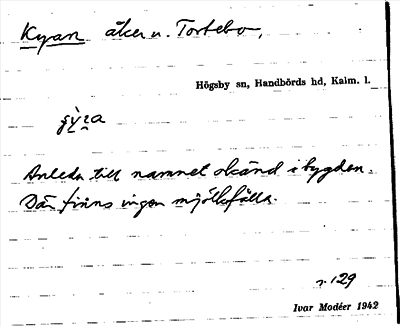 Kyan åker u. Tortebo,
Högsby sn, Handbörds hd, Kalm. l.
Anledn. till namnet okänd i bygden.
Där finns ingen mjölkfålla.
r. 129
Ivar Modéer 1942